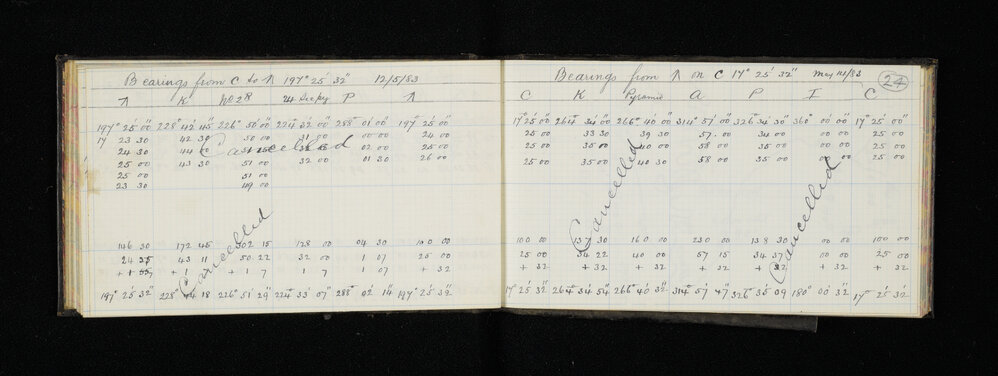 Bearings from C to Λ 197° 25' 32" 12/5/83
Λ K No 2 R P Λ
197° 25' 00" 228° 42' 45" 226° 50' 00" 224° 32' 00" 288° 01' 00" 197° 25' 00"
17 23 30 42 30 50 00 31 00 00 00 24 00
24 30 02 00 25 00
25 00 43 30 51 00 32 00 01 30 26 00
25 00 51 00
23 30 49 00
Cancelled
Cancelled
146 30 172 45 302 15 128 00 04 30 100 00
24 25 43 11 50 22 32 00 1 07 25 00
+ 1 07 + 1 + 1 7 1 7 1 07 + 32
197° 25' 32" 228° 44 18 226° 51' 29" 224° 33' 07" 288° 02' 14" 197° 25' 32"
Bearings from Λ on C 17° 25' 32" May 12/83 24
C K Pyramid A P I C
17° 25' 00" 264° 34' 00" 266° 40' 00" 314° 57' 00" 326° 34' 30" 360° 00' 00" 17° 25' 00"
25 00 33 30 39 30 57 00 34 00 00 00 25 00
25 00 35 00 40 00 58 00 35 00 00 00 25 00
25 00 35 00 40 30 58 00 35 00 00 00 25 00
Cancelled
Cancelled
100 00 137 30 160 00 230 00 138 30 00 00 100 00
25 00 34 22 40 00 57 15 34 37 00 00 25 00
+ 32 + 32 + 32 + 32 + 32 + 32 + 32
17° 25' 32" 264° 34' 54" 266° 40' 32" 314° 57' 47" 326° 35' 09 180° 00' 32 17° 25' 32